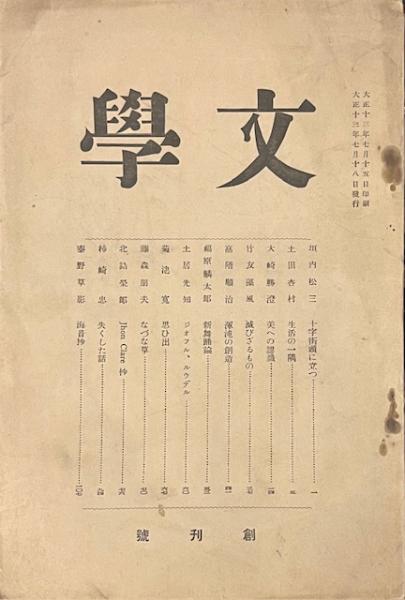 文學
大正十三年七月十五日印刷
大正十三年七月十八日發行
垣内松三 十字街頭に立つ 一
土田杏村 生活の一隅 五
大崎勝澄 美への認識
竹友藻風 滅びざるもの
高階順治 渾沌の創造
福原麟太郎 新舞踊論
土居光知 ジオフル、ルウデル
菊池寛 思ひ出
藤森朋夫 なづな草
北島榮郎 Jhon Clare 抄
柿崎忠 失くした話
秦野草影 海音抄
創刊號